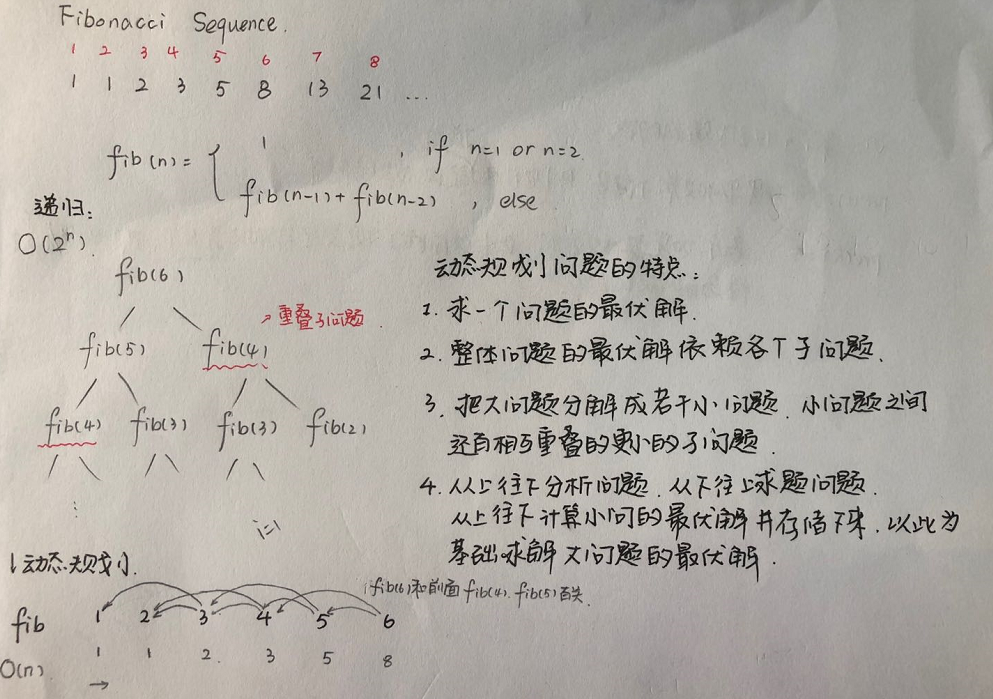 Fibonacci Sequence.
1 2 3 4 5 6 7 8
1 1 2 3 5 8 13 21 ...
fib(n)= { 1 , if n=1 or n=2
fib(n-1)+fib(n-2) , else
递归:
O(2ⁿ)
fib(6)
fib(5) fib(4) → 重叠子问题
fib(4) fib(3) fib(3) fib(2)
i=1
动态规划问题的特点:
1. 求一个问题的最优解.
2. 整体问题的最优解依赖各个子问题.
3. 把大问题分解成若干小问题. 小问题之间
还有相互重叠的更小的子问题
4. 从上往下分析问题. 从下往上求题问题.
从上往下计算小问的最优解并存储下来. 以此为
基础求解大问题的最优解.
动态规划
fib(6)和前面fib(4).fib(5)有关.
fib 1 2 3 4 5 6
O(n) 1 1 2 3 5 8
→